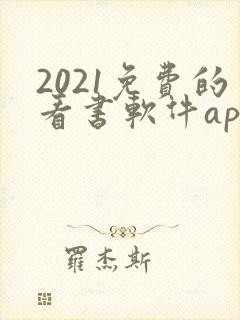 2021免費的
看書軟件ap
羅杰斯